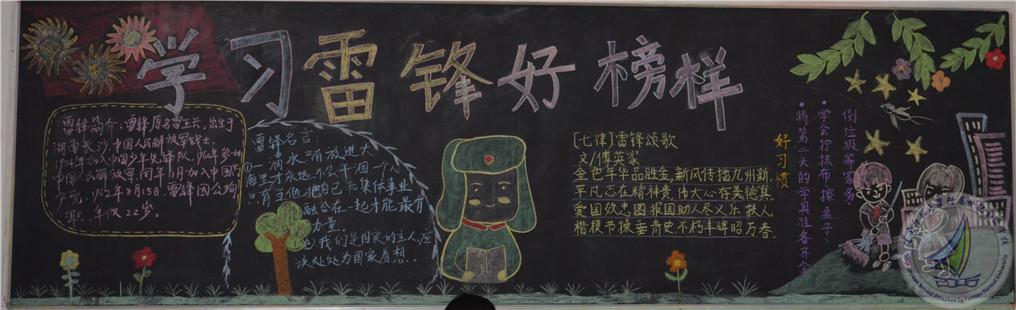 学习雷锋好榜样
雷锋简介:雷锋原名雷正兴,出生于
湖南长沙,中国人民解放军战士,
1954年加入中国少年先锋队,1960年参加
中国人民解放军,同年11月加入中国
1962年8月15日,雷锋因公殉
职,年仅22岁。
雷锋名言:
①一滴水只有放进大
海里才永远不会干涸,一个人
只有当他把自己和集体事业
融合在一起才能最有
力量。
②我们是国家的主人,应
该处处为国家着想。
[七律]雷锋颂歌
文/傅英家
金色年华品胜金,新风传播九州新,
平凡志在精神贵,伟大心存美德真,
爱国效忠图报国,助人尽义乐扶人,
楷模节操垂青史,不朽丰碑昭万春.
好习惯
·将第二天的学具准备齐全
·学会拧抹布、擦桌子、
倒垃圾等家务